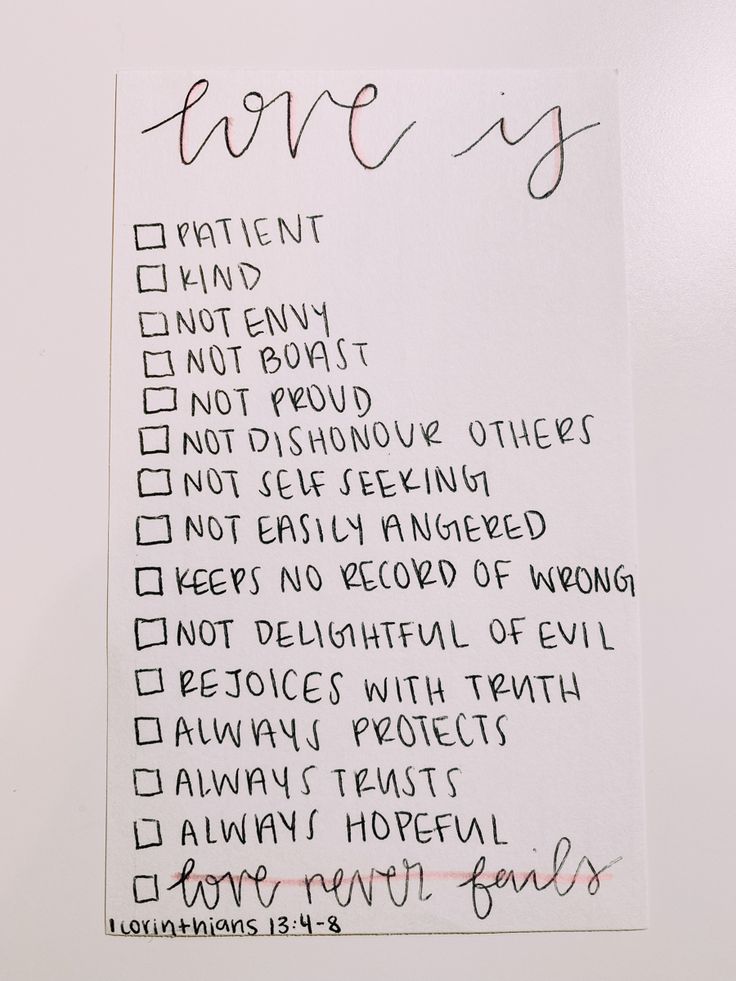 love is
☐ PATIENT
☐ KIND
☐ NOT ENVY
☐ NOT BOAST
☐ NOT PROUD
☐ NOT DISHONOUR OTHERS
☐ NOT SELF SEEKING
☐ NOT EASILY ANGERED
☐ KEEPS NO RECORD OF WRONG
☐ NOT DELIGHTFUL OF EVIL
☐ REJOICES WITH TRUTH
☐ ALWAYS PROTECTS
☐ ALWAYS TRUSTS
☐ ALWAYS HOPEFUL
☐ love never fails
1 corinthians 13:4-8